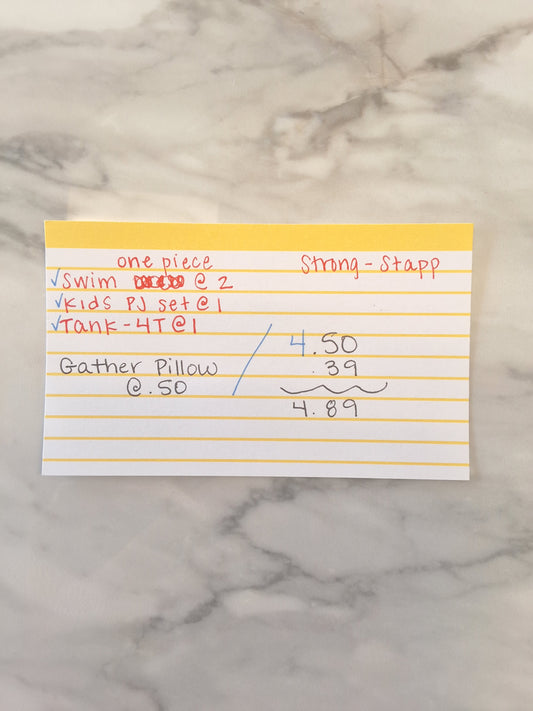 one piece
Strong - Stapp
✓Swim @ 2
✓Kids PJ set @ 1
✓Tank - 4T @ 1
Gather Pillow
@ .50
4.50
.39
4.89